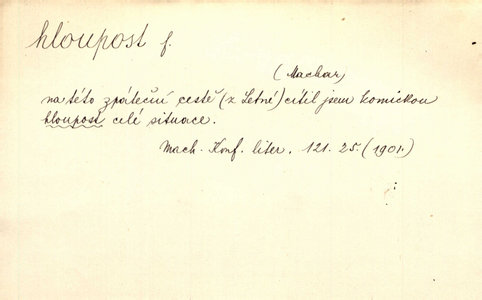 hloupost f.
(Machar)
na této zpáteční cestě (z Letné) cítil jsem komickou
hloupost celé situace.
Mach. Konf. liter. 121. 25. (1901.)